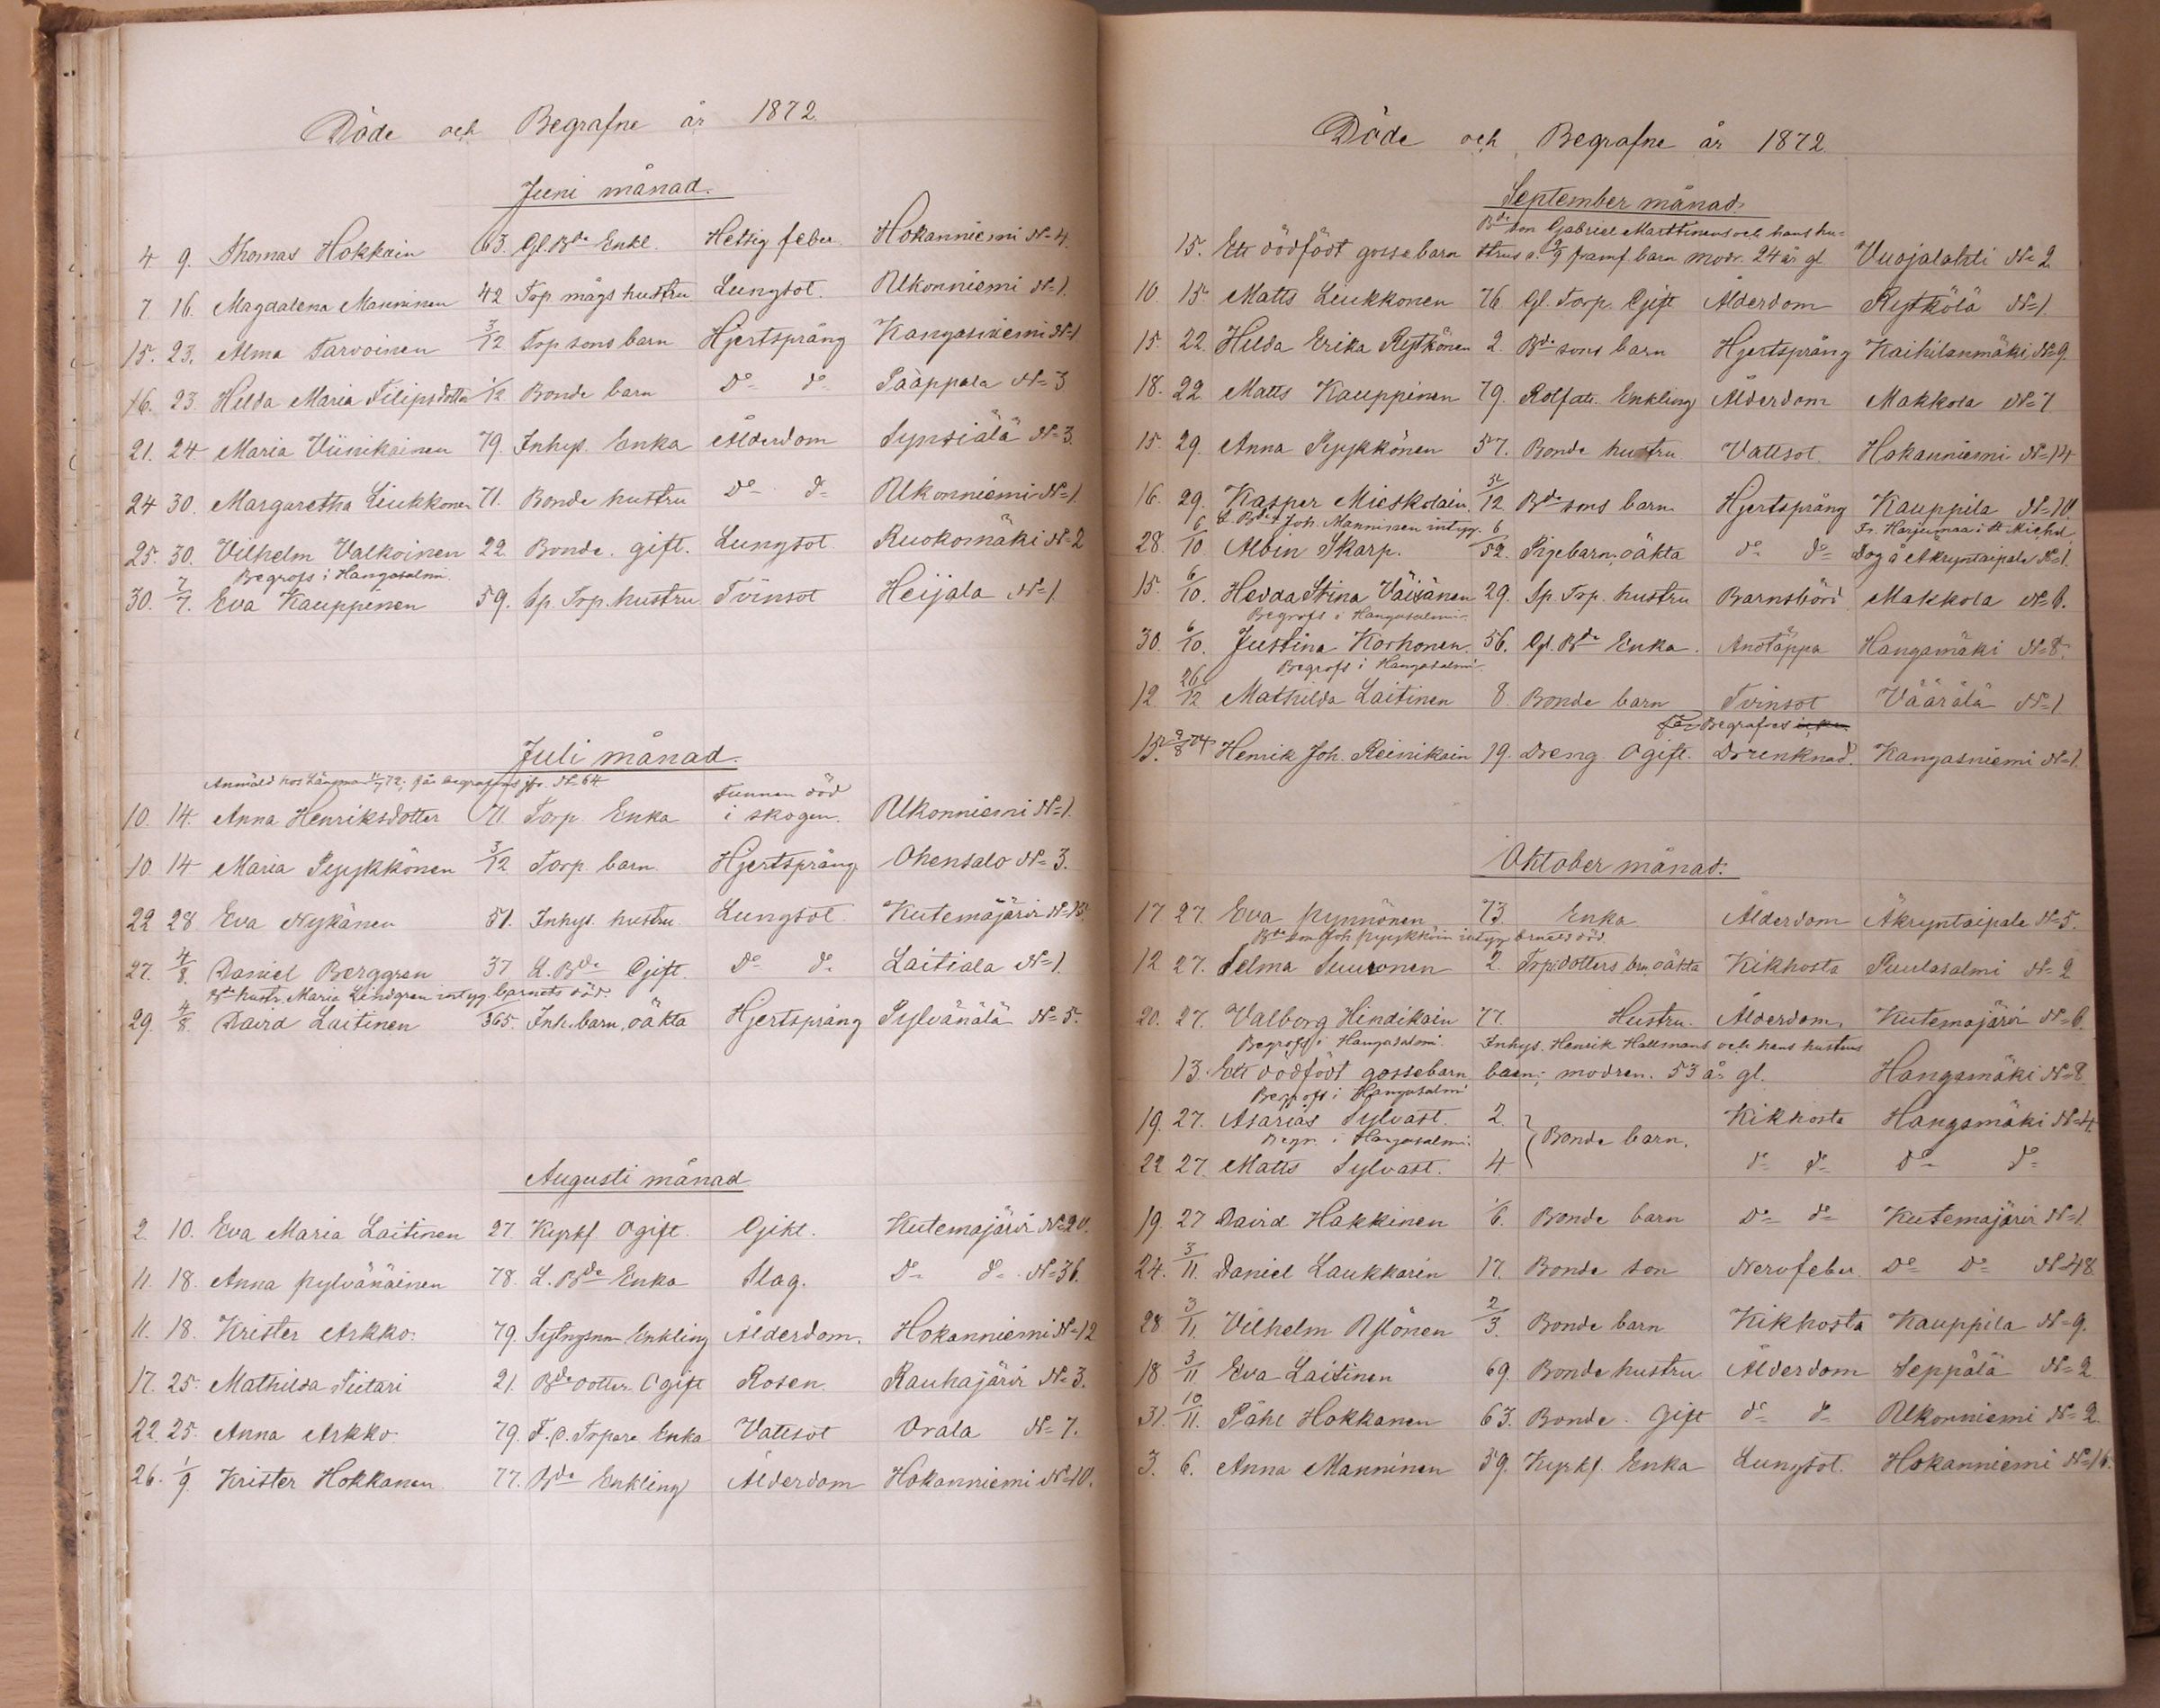 Döde och Begrafne år 1872.
Juni månad.
4 9. Thomas Hokkain 63. Gl. Bde Enkl. Hettig feber. Hokanniemi N=4.
7. 16. Magdalena Manninen 42 Torp mågs hustru Lungsot. Ukonniemi N=1.
15. 23. Alma Tarvoinen 3/12 Torp sons barn Hjertsprång Kangasniemi N=1
16. 23. Hilda Maria Filipsdotter 1/12 Bonde barn Do= do= Pääppala N=3
21. 24 Maria Viinikainen 79. Inhys. Enka Ålderdom Synsiälä N=3.
24 30. Margaretha Liukkonen 71. Bonde hustru Do= do= Ukonniemi N=1.
25. 30. Vilhelm Valkoinen 22. Bonde. gift. Lungsot Ruokomäki N=2
Begrofs i Hangasalmi.
30. 7/7. Eva Kauppinen 59. Sp. Torp. hustru Tvinsot Heijala N=1
Juli månad.
Anmäld hos Länsman 11/7 72; får begrafvas jfr. N=64.
10. 14. Anna Henriksdotter 71. Torp Enka Funnen död i skogen. Ukonniemi N=1.
10. 14 Maria Pyykkönen 3/12 Torp. barn. Hjertsprång Ohensalo N=3.
22 28 Eva Nykänen 51. Inhys. hustru. Lungsot Kutemajärvi N=15.
27. 4/8. Daniel Berggren 37 L. Bde Gift. Do= do= Laitiala N=1.
Bde hustr. Maria Lindgren intyg. barnets död.
29. 4/8. David Laitinen /365. Inh. barn, oäkta Hjertsprång Pylvänälä N=5.
Augusti månad
2 10. Eva Maria Laitinen 27. Kyrkf. Ogift. Gikt. Kutemajärvi N=20.
11. 18. Anna Pylvänäinen 78. L. Bde Enka Slag. Do= do= N=36.
11. 18. Krister Arkko. 79. Sytngsm. Enkling Ålderdom. Hokanniemi N=12
17. 25. Mathilda Tiitari 21. Bde dotter. Ogift Rosen. Rauhajärvi N=3.
22. 25. Anna Arkko. 79. F. d. Torpare Enka Vattsot Orala N=7.
26. 1/9 Krister Hokkanen 77. Bde Enkling Ålderdom Hokanniemi N=10.
Döde och Begrafne år 1872.
September månad.
Bde son Gabriel Marttinens och hans hu=
15. Ett dödfödt gossebarn strus d. 2/9 framf. barn modr. 24 år gl. Vuojalahti N=2
10. 15 Matts Liukkonen 76 Gl. Torp. Gift Ålderdom Rytkölä N=1.
15 22. Hilda Erika Rytkönen 2. Bde sons barn Hjertsprång Kaihilanmäki N=9
18. 22 Matts Kauppinen 79. Rotfatt. Enkling Ålderdom Makkola N=7
15 29. Anna Pyykkönen 57. Bonde hustru. Vattsot. Hokanniemi N=14
16. 29. Kasper Mieskolain. /12 Bde sons barn Hjertsprång Kauppila N=10
L. Bde Joh. Manninen intyg. Fr. Harjumaa i St. Michel
28. 6/10 Albin Skarp. 6/52. Pigebarn, oäkta do= do= Dog å Äkryntaipale N=1.
15. 6/10. Hedda Stina Väisänen 29. Sp. Torp. hustru Barnsbörd Makkola N=6.
Begrofs i Hangasalmi.
30. 6/10. Justina Korhonen. 56. Gl. Bde Enka. Andtäppa Hangamäki N=8.
Begrofs i Hangasalmi.
12 26/12 Mathilda Laitinen 8. Bonde barn Tvinsot Väärälä N=1
får Begrafves
15. 9/8 74 Henrik Joh. Reinikain 19. Dreng Ogift. Drenknad. Kangasniemi N=1.
Oktober månad.
17 27. Eva Pynnönen 73 Enka Ålderdom Äkryntaipale N=5.
Bde son Joh Pyykköin intyg. brnets död.
12 27. Selma Suuronen 2. Trp. dotters brn, oäkta Kikhosta Puulasalmi N=2
20. 27. Valborg Hindikain 77. Hustru. Ålderdom. Kutemajärvi N=6.
Begrofs i Hangasalmi. Inhys. Henrik Hallmans och hans hustrus
13. Ett dödfödt gossebarn barn; modren. 53 år gl. Hangamäki N=8.
Begrofs i Hangasalmi
19. 27. Asarias Sylvast. 2. Kikhosta Hangamäki N=4.
Begr. i Hangasalmi. Bonde barn.
22 27. Matts Sylvast. 4. do= do= Do= do=
19. 27 David Häkkinen 1/6. Bonde barn Do= do= Kutemajärvi N=1
24. 3/11. Daniel Laukkarin 17. Bonde son Nervfeber Do= Do= N=48.
28 3/11. Vilhelm Ylönen 2/3. Bonde barn Kikhosta Kauppila N=9.
18 3/11 Eva Laitinen 69. Bonde hustru Ålderdom Seppälä N=2
31. 10/11. Påhl Hokkanen 63. Bonde. Gift do= do= Ukonniemi N=2.
3. 6. Anna Manninen 59. Kyrkf. Enka Lungsot. Hokanniemi N=16.